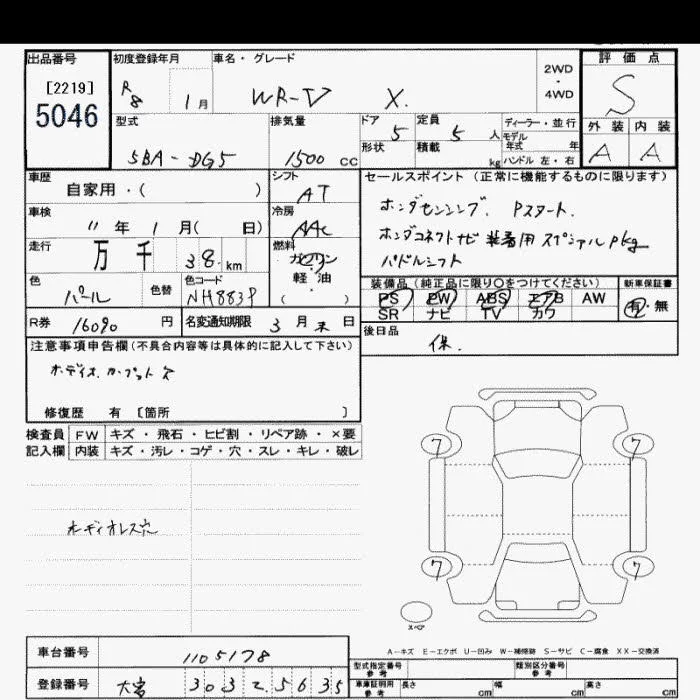 出品番号 初度登録年月 車名・グレード 2WD・4WD 評価点
[2219]
5046
R8 1月 WR-V X. S
型式 排気量 ドア 定員 ディーラー・並行 外装 内装
5BA-DG5 1500 cc 5 5 人 モデル年式 年 A A
形状 積載 kg ハンドル 左・右
車歴 シフト セールスポイント (正常に機能するものに限ります)
自家用・( ) AT
ホンダセンシング. Pスタート.
車検 冷房
11年 1月( 日) AAC
ホンダコネクトナビ装着用スペシャルpkg
走行 燃料
万 千 38. km ガソリン・軽油 ( )
パドルシフト
色 色替 色コード
パール NH883P
装備品(純正品に限り○をつけてください) 新車保証書
PS PW ABS エアB AW 有・無
SR ナビ TV カワ
R券 16090 円 名変通知期限 3月末日
後日品 保.
注意事項申告欄(不具合内容等は具体的に記入して下さい)
修復歴 有 [箇所 ]
検査員 FW キズ・飛石・ヒビ割・リペア跡・×要
記入欄 内装 キズ・汚レ・コゲ・穴・スレ・キレ・破レ
オーディオレス穴
7 7
7 7
スペア
A-キズ E-エクボ U-凹み W-補修跡 S-サビ C-腐食 XX-交換済
車台番号 1105178
型式指定番号 参考 類別区分番号 参考
登録番号 大宮 303 2 5635
車庫証明用 参考 長さ cm 幅 cm 高さ cm